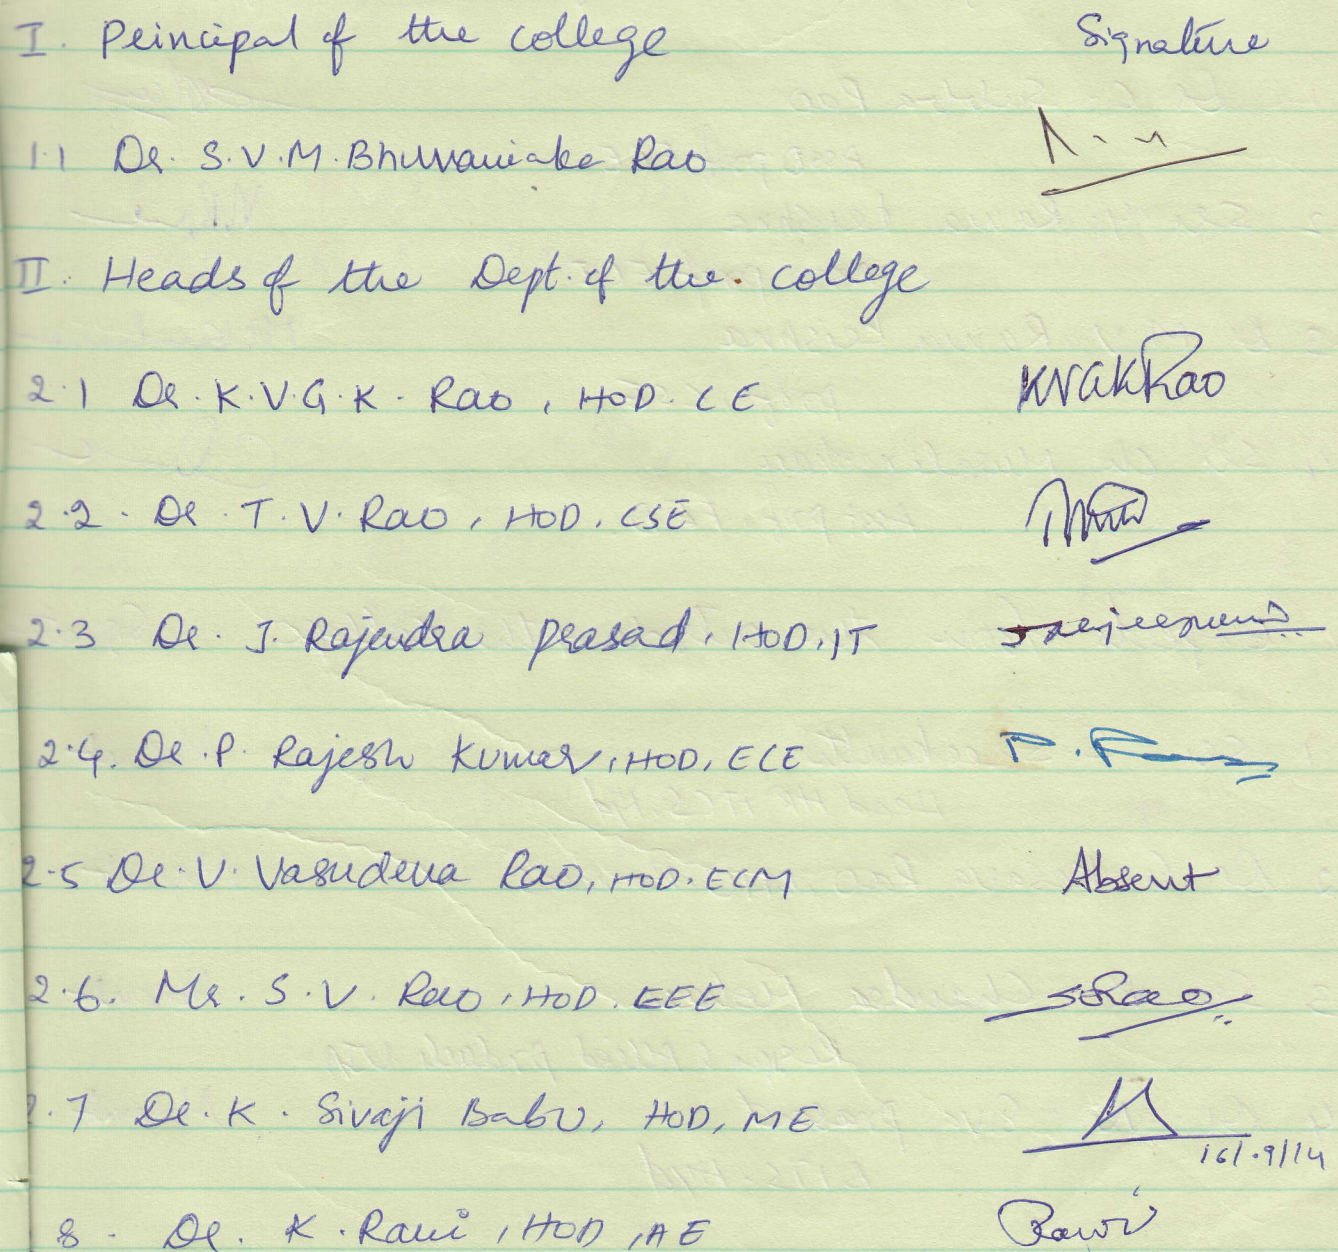 I. Principal of the college Signature
1.1 Dr. S.V.M. Bhuvanaika Rao
II. Heads of the Dept. of the college
2.1 Dr. K.V.G.K. Rao, HOD. CE KVGKRao
2.2. Dr. T.V. Rao, HOD, CSE
2.3 Dr. J. Rajendra prasad, HOD, IT
2.4. Dr. P. Rajesh Kumar, HOD, ECE
2.5 Dr. V. Vasudeva Rao, HOD. ECM Absent
2.6. Mr. S.V. Rao, HOD. EEE SRao
2.7 Dr. K. Sivaji Babu, HOD, ME
16/.9/14
8. Dr. K. Ravi, HOD, AE Ravi